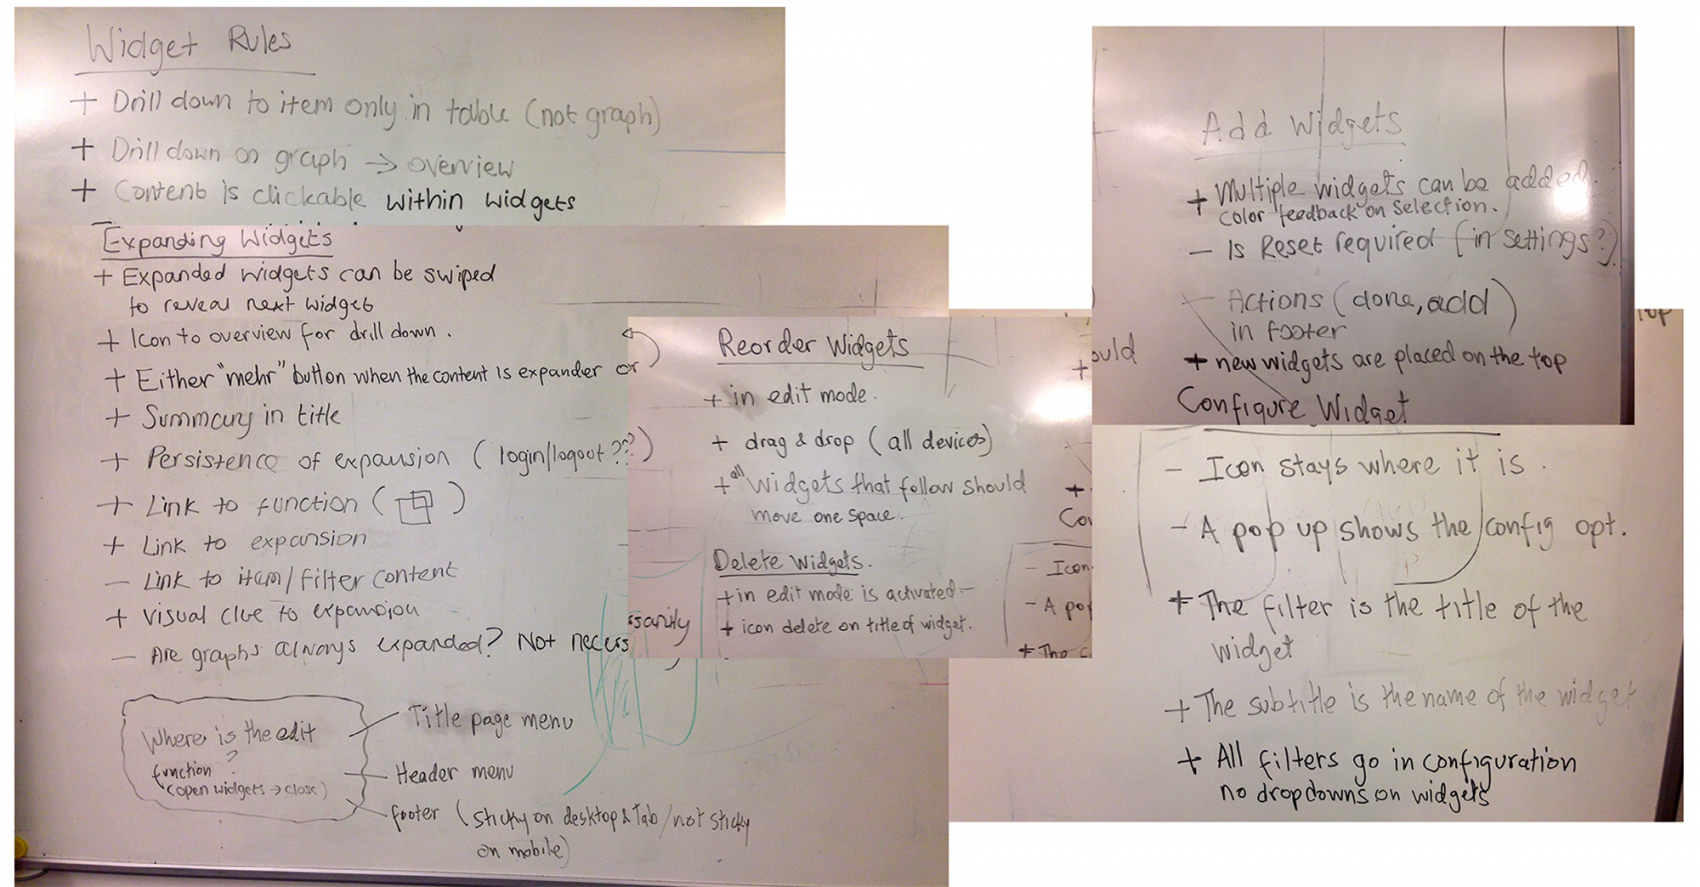 Widget Rules
+ Drill down to item only in table (not graph)
+ Drill down on graph → overview
+ Content is clickable within widgets
Expanding Widgets
+ Expanded widgets can be swiped
to reveal next widget
+ Icon to overview for drill down.
+ Either "mehr" button when the content is expander or
+ Summary in title
+ Persistence of expansion (login/logout ???)
+ Link to function ( )
+ Link to expansion
- Link to item/filter content
+ Visual clue to expansion
- Are graphs always expanded? Not necess
Where is the edit
function ?
(open widgets → close)
Title page menu
Header menu
footer (sticky on desktop & Tab / not sticky
on mobile)
Reorder Widgets
+ in edit mode.
+ drag & drop (all devices)
+ all widgets that follow should
move one space.
Delete Widgets.
+ in edit mode is activated -
+ icon delete on title of widget.
ssarily
ould
+
+
Co
- Icon
- A po
+ The f
Add Widgets
+ Multiple widgets can be added.
color feedback on selection.
- Is Reset required (in settings?)
- Actions (done, add)
in footer
+ new widgets are placed on the top
Configure Widget
top
- Icon stays where it is.
- A pop up shows the config opt.
+ The filter is the title of the
widget
+ The subtitle is the name of the widget
+ All filters go in configuration
no dropdowns on widgets